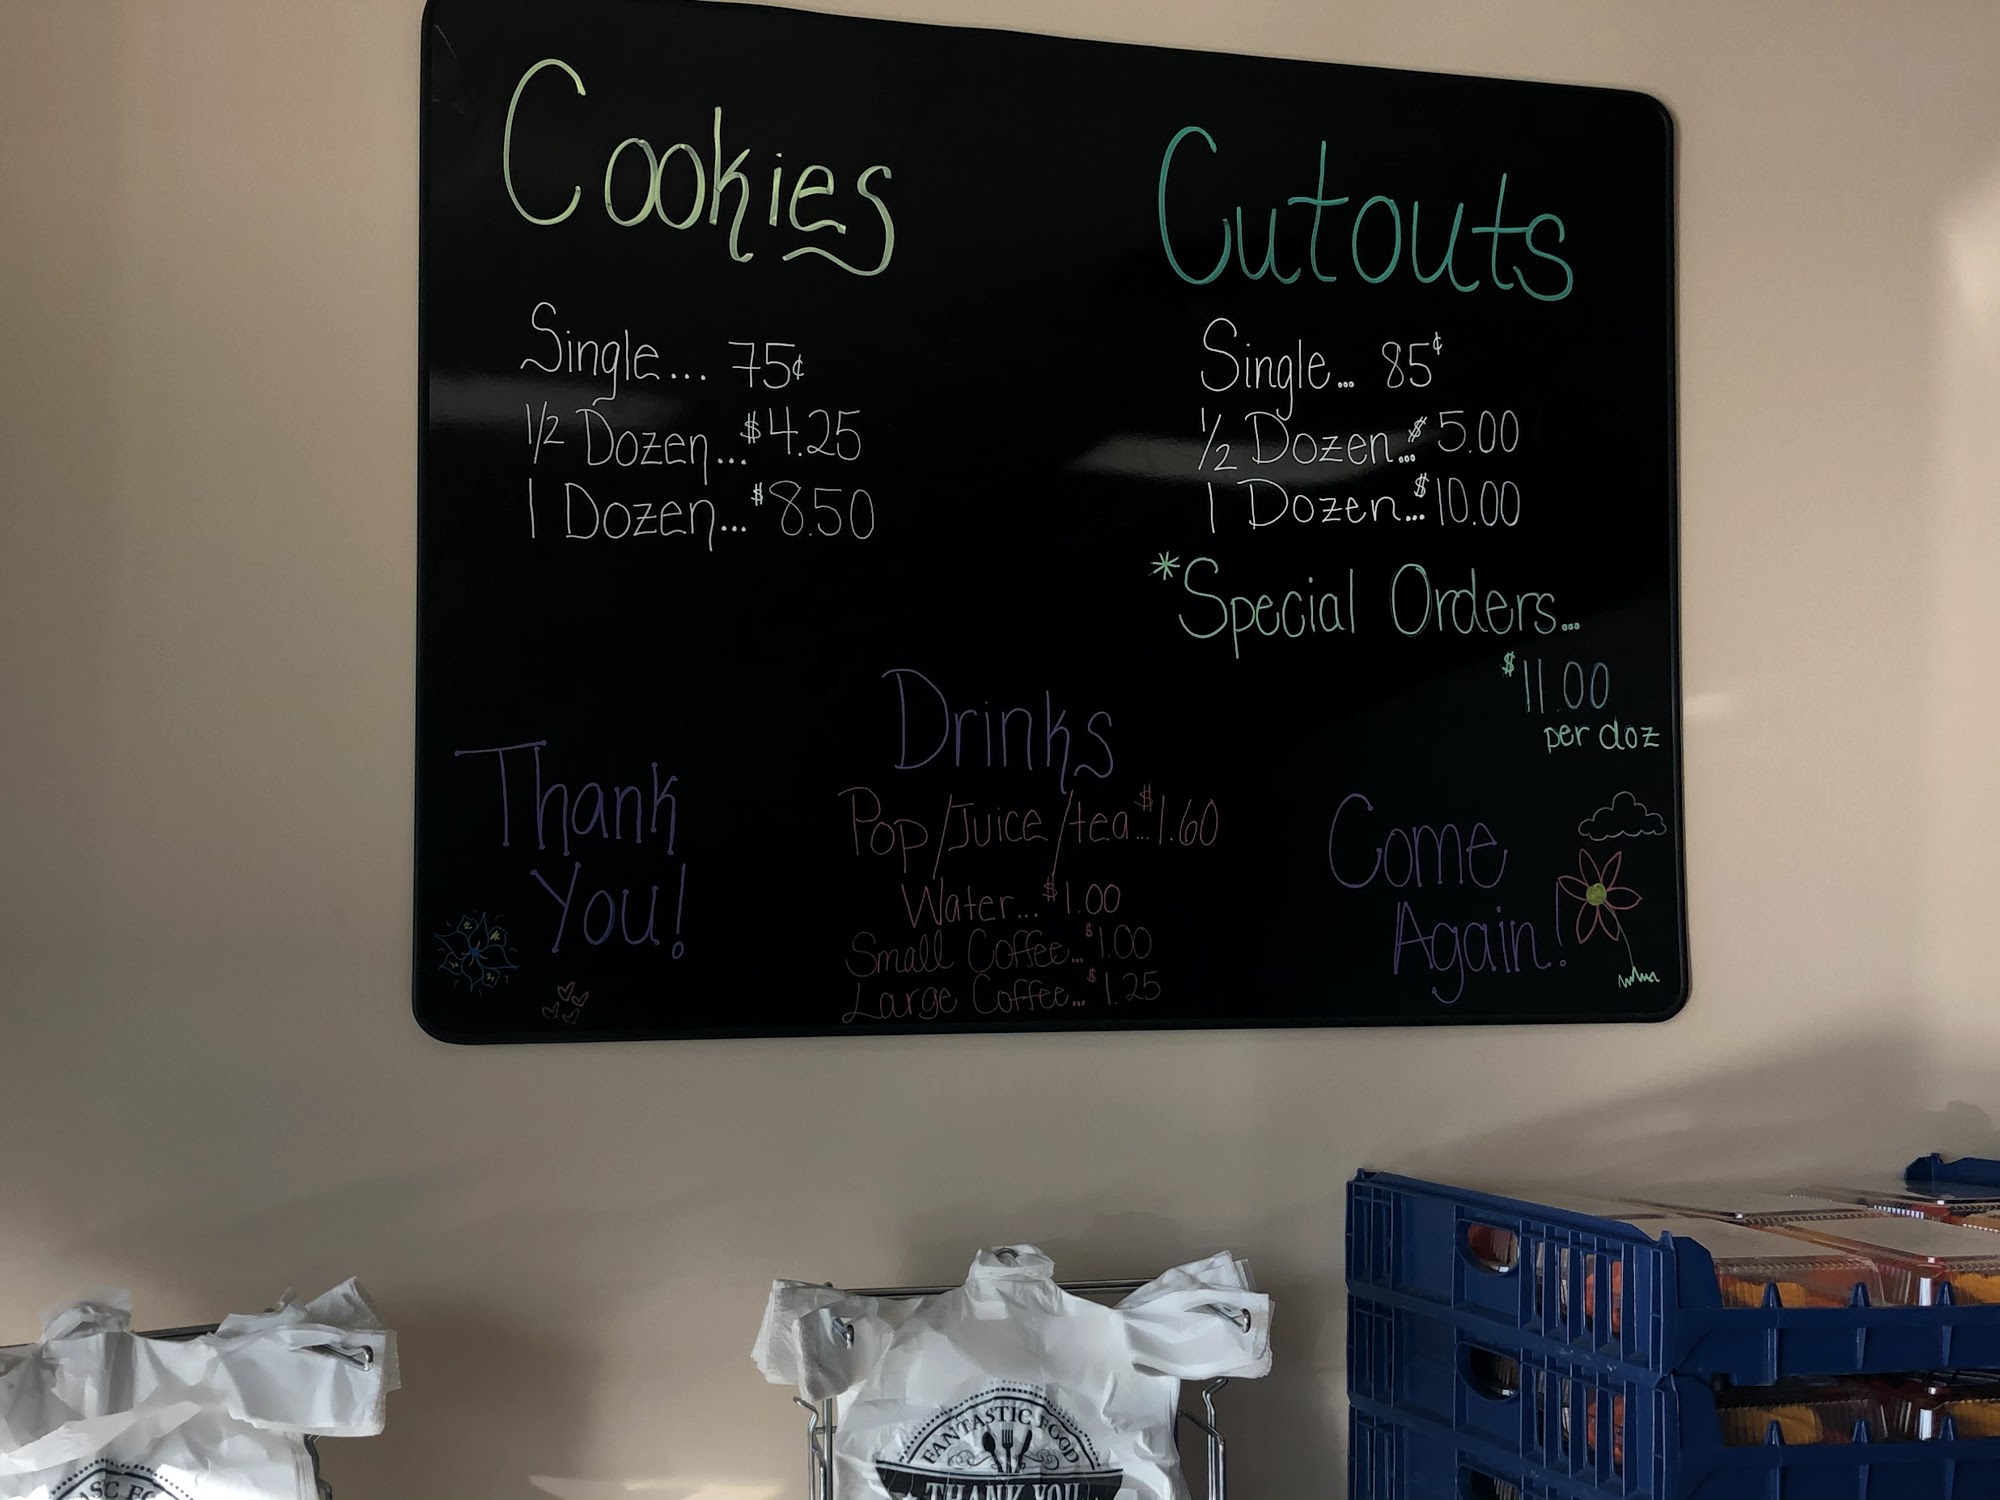 Cookies
Single... 75¢
1/2 Dozen... $4.25
1 Dozen... $8.50
Cutouts
Single... 85¢
1/2 Dozen... $5.00
1 Dozen... $10.00
*Special Orders...
$11.00
per doz
Drinks
Pop/Juice/tea... $1.60
Water... $1.00
Small Coffee... $1.00
Large Coffee... $1.25
Thank
You!
Come
Again!
FANTASTIC FOOD
THANK YOU